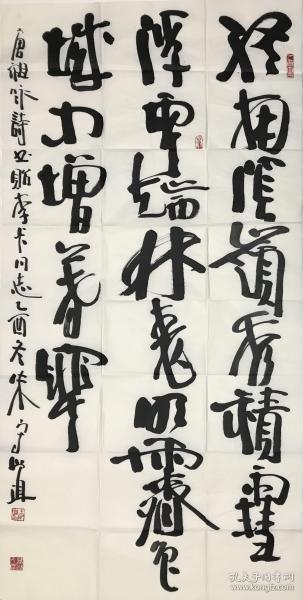 终南阴岭秀积雪
浮云端林表明霁色
城中增暮寒
唐祖咏诗 书赠李卡同志 乙酉冬 朱
孔夫子旧书网